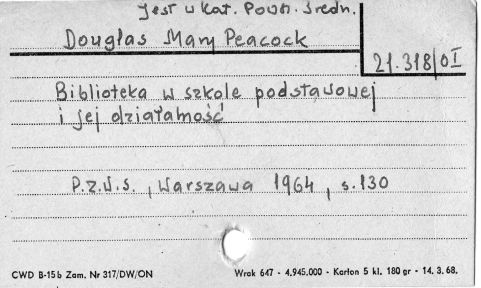 jest w kat. Pow. Średn.
Douglas Mary Peacock
21.318/OI
Biblioteka w szkole podstawowej
i jej działalność
P.Z.W.S., Warszawa 1964, s.130
CWD B-15b Zam. Nr 317/DW/ON Wrak 647 - 4.945.000 - Karton 5 kl. 180 gr - 14. 3. 68.